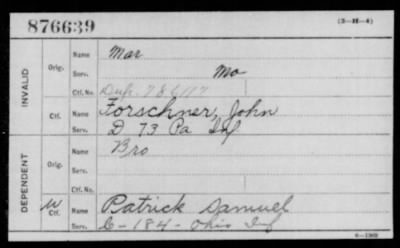 876639
(3-H-4)
INVALID
Orig.
Name Mar
Serv. Mo
Ctf. No. Dup. 786117
Ctf.
Name Forschner, John
Serv. D 73 Pa Inf
DEPENDENT
Orig.
Name Bro
Serv.
Ctf. No.
W Ctf.
Name Patrick Samuel
Serv. D-184-Ohio Inf